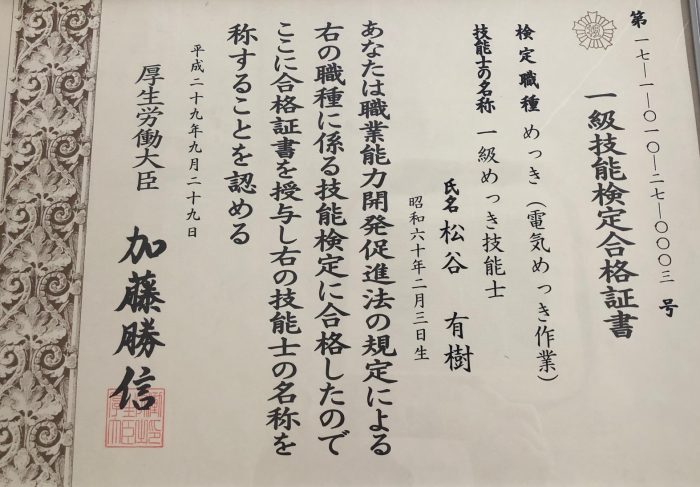 第一七―一―〇一〇―二七―〇〇〇三号
一級技能検定合格証書
検定職種 めっき（電気めっき作業）
技能士の名称 一級めっき技能士
氏名 松谷 有樹
昭和六十年二月三日生
あなたは職業能力開発促進法の規定による
右の職種に係る技能検定に合格したので
ここに合格証書を授与し右の技能士の名称を
称することを認める
平成二十九年九月二十九日
厚生労働大臣 加藤勝信